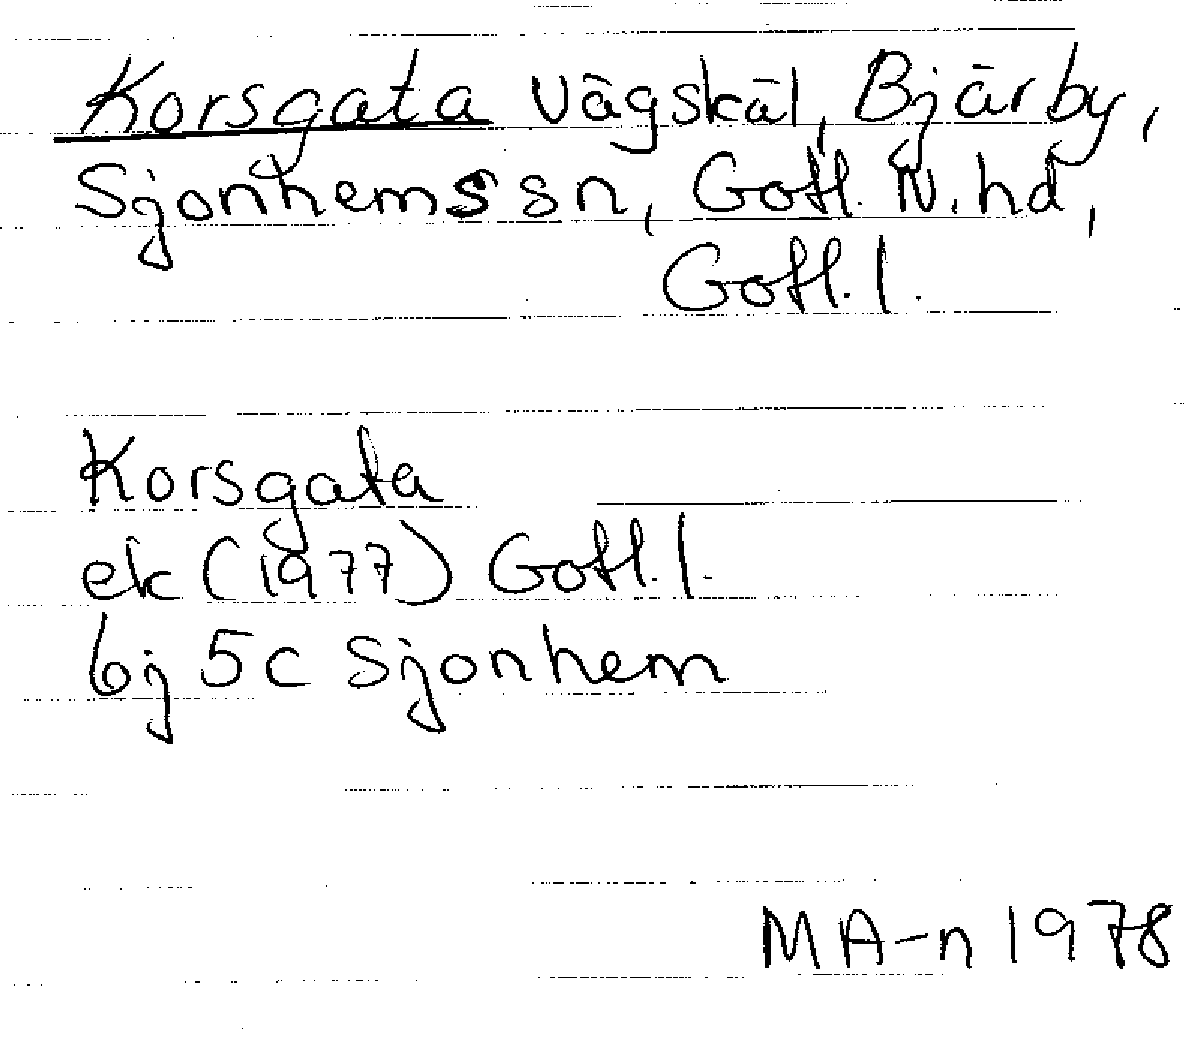 Korsgata vägskäl, Bjärby,
Sjonhems sn, Gotl. N. hd,
Gotl. l.
Korsgata
ek (1977) Gotl. l.
bj 5c Sjonhem
MA-n 1978